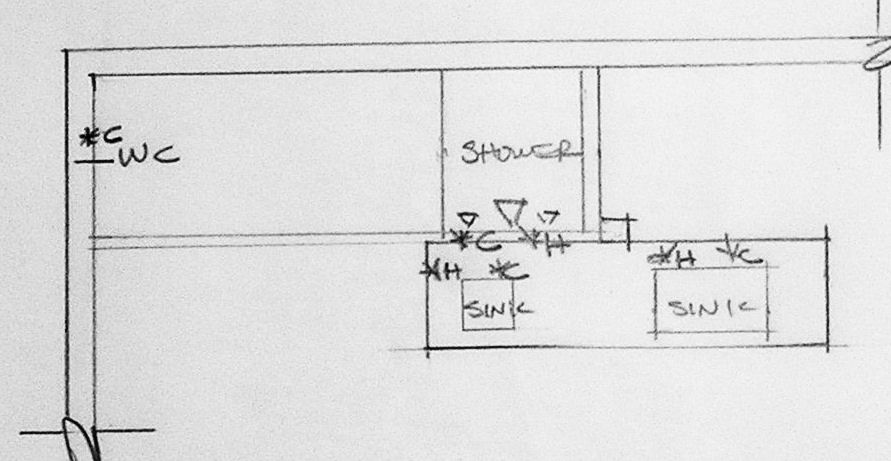 C
WC
SHOWER
C H
H C H C
SINK SINK